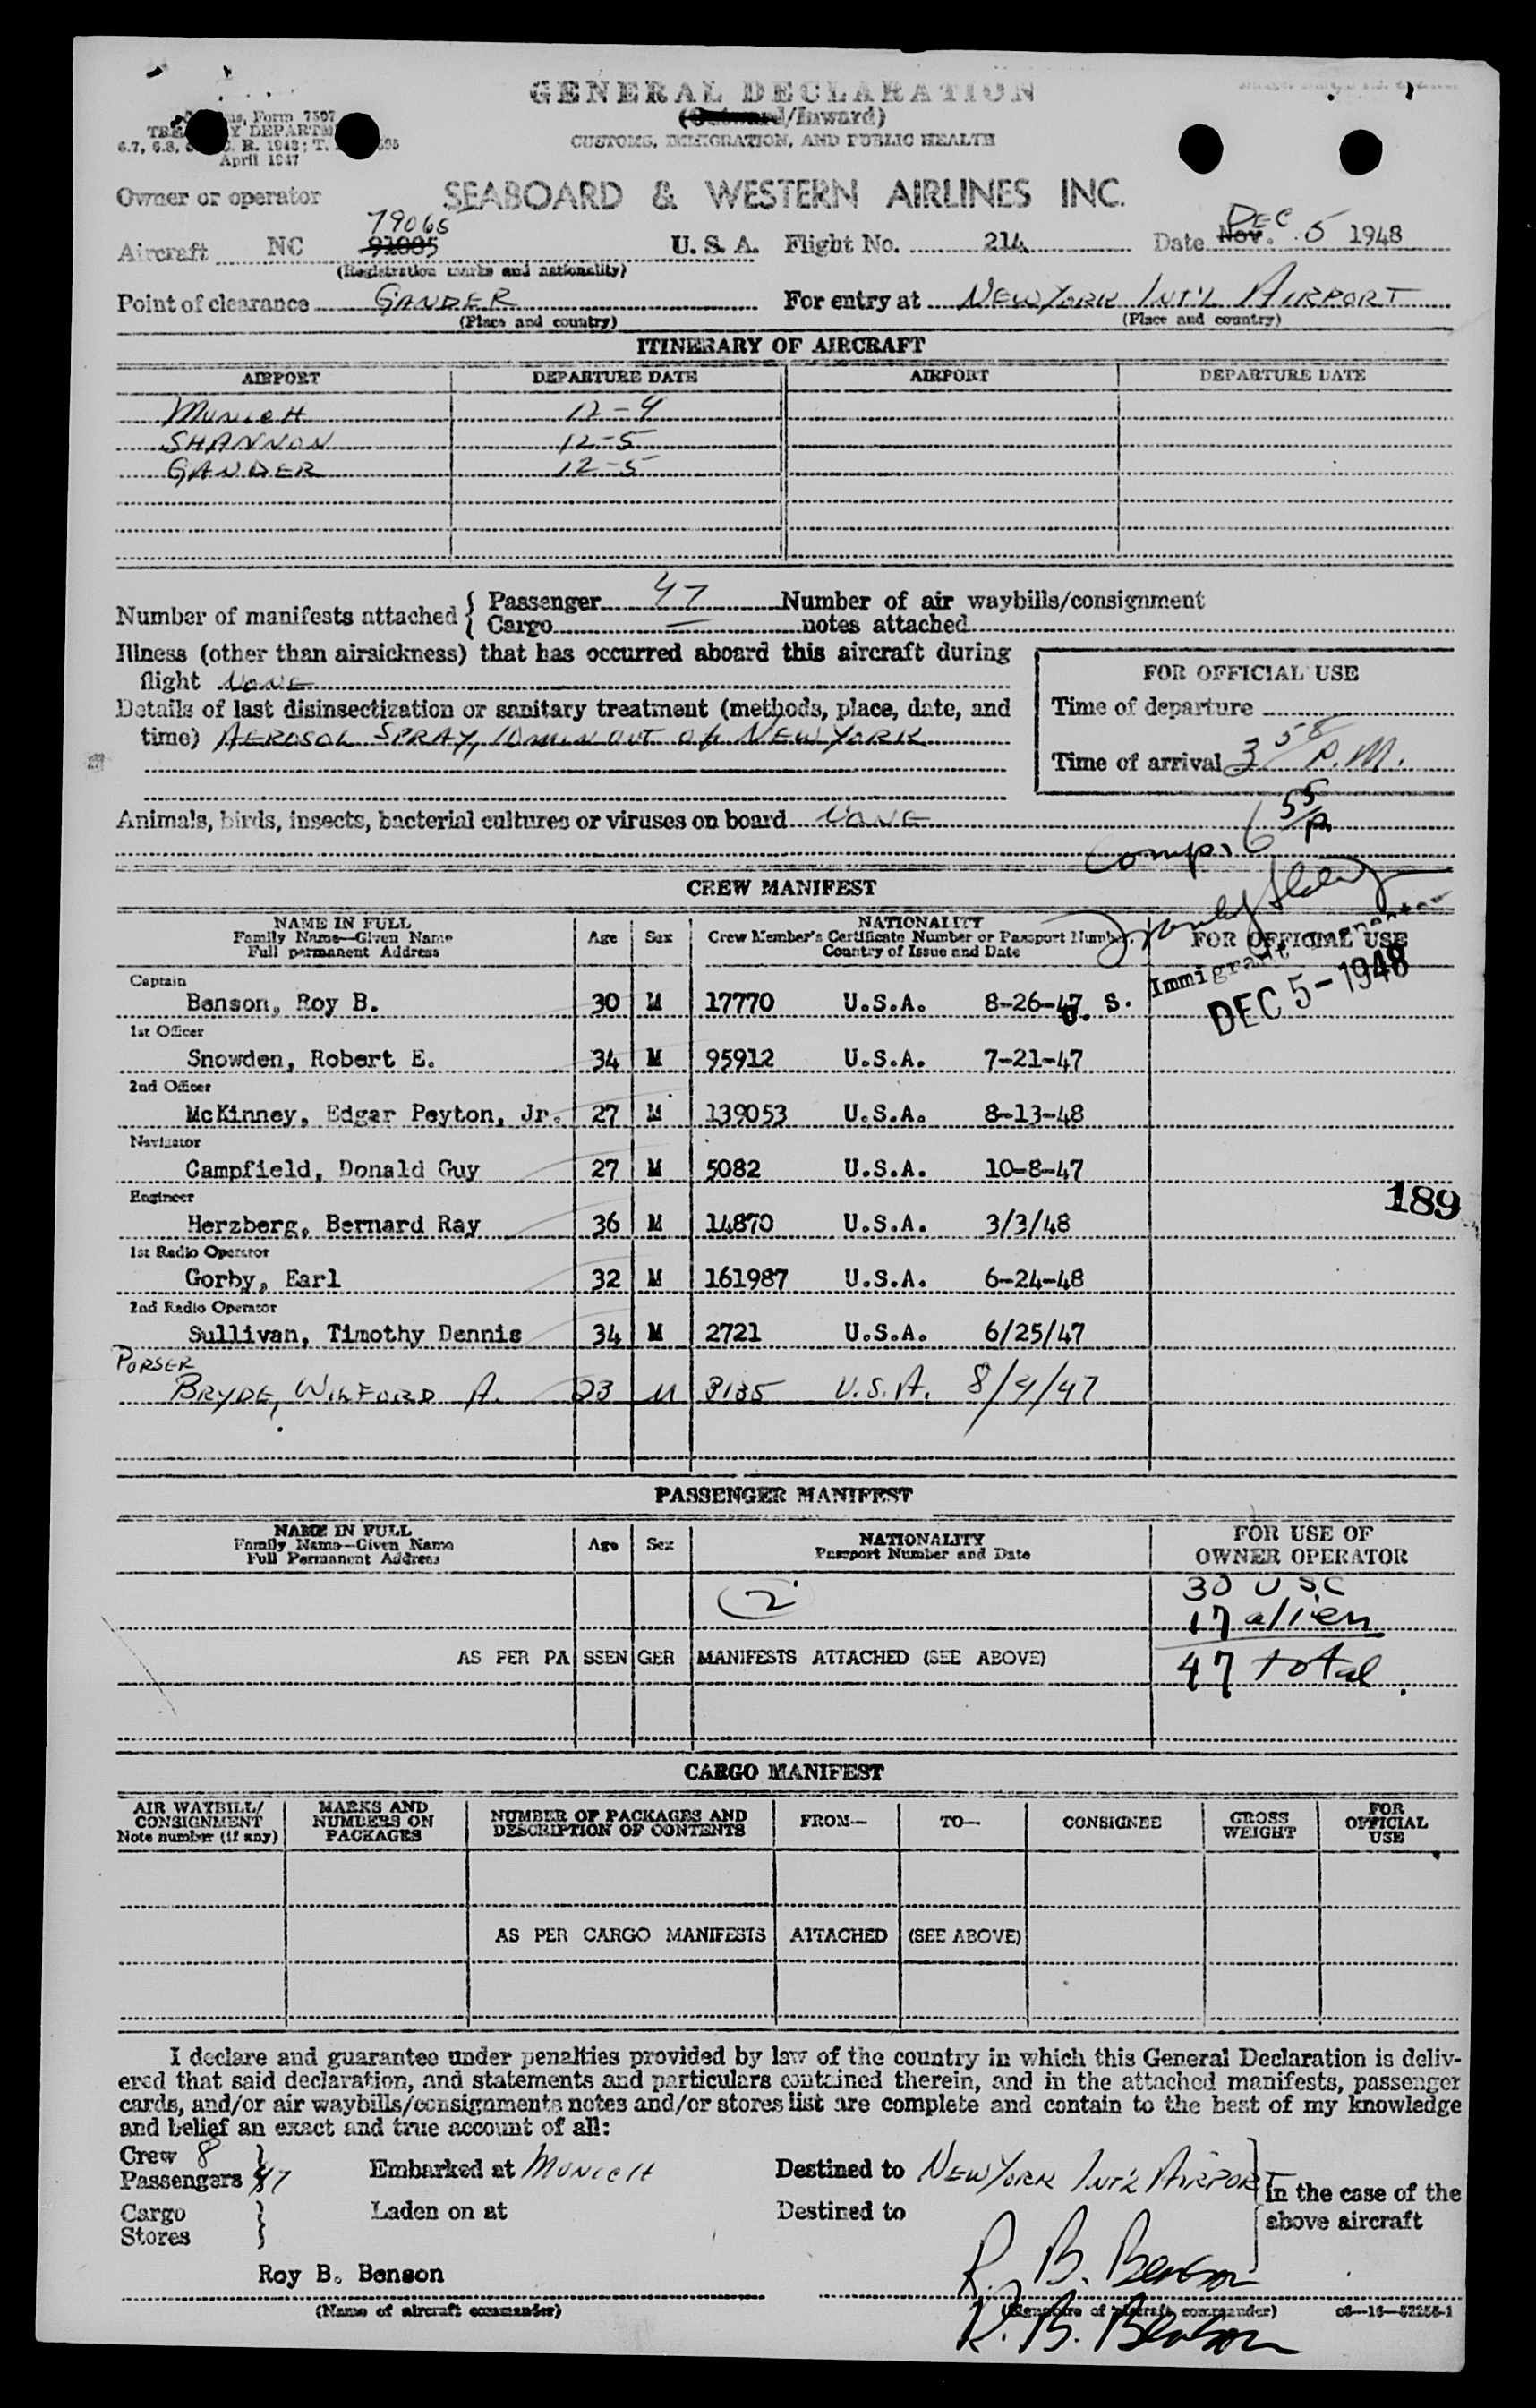 GENERAL DECLARATION
(Outward/Inward)
CUSTOMS, IMMIGRATION, AND PUBLIC HEALTH
Form 7507
TREASURY DEPARTMENT
April 1947
Owner or operator SEABOARD & WESTERN AIRLINES INC.
79065
Aircraft NC 91085 U. S. A. Flight No. 214 Date Nov. DEC 5 1948
(Registration marks and nationality)
Point of clearance GANDER For entry at NEW YORK INT'L AIRPORT
(Place and country) (Place and country)
ITINERARY OF AIRCRAFT
AIRPORT DEPARTURE DATE AIRPORT DEPARTURE DATE
MUNICH 12-4
SHANNON 12-5
GANDER 12-5
Number of manifests attached { Passenger 47 Number of air waybills/consignment
Cargo — notes attached
Illness (other than airsickness) that has occurred aboard this aircraft during
flight NONE
FOR OFFICIAL USE
Details of last disinsectization or sanitary treatment (methods, place, date, and
time) AEROSOL SPRAY, 10 MIN OUT OF NEW YORK
Time of departure
Time of arrival 3 58 P.M.
Animals, birds, insects, bacterial cultures or viruses on board NONE
Comp. 6 55 P.
CREW MANIFEST
NAME IN FULL
Family Name—Given Name
Full permanent Address
Age Sex
NATIONALITY
Crew Member's Certificate Number or Passport Number.
Country of Issue and Date
FOR OFFICIAL USE
U. S. Immigrant
DEC 5-1948
Captain
Benson, Roy B. 30 M 17770 U.S.A. 8-26-47
1st Officer
Snowden, Robert E. 34 M 95912 U.S.A. 7-21-47
2nd Officer
McKinney, Edgar Peyton, Jr. 27 M 139053 U.S.A. 8-13-48
Navigator
Campfield, Donald Guy 27 M 5082 U.S.A. 10-8-47
189
Engineer
Herzberg, Bernard Ray 36 M 14870 U.S.A. 3/3/48
1st Radio Operator
Gorby, Earl 32 M 161987 U.S.A. 6-24-48
2nd Radio Operator
Sullivan, Timothy Dennis 34 M 2721 U.S.A. 6/25/47
PORSER
BRYDE, WILFORD A. 23 M 3135 U.S.A. 8/4/47
PASSENGER MANIFEST
NAME IN FULL
Family Name—Given Name
Full Permanent Address
Age Sex
NATIONALITY
Passport Number and Date
FOR USE OF
OWNER OPERATOR
2
30 USC
17 alien
AS PER PASSENGER MANIFESTS ATTACHED (SEE ABOVE)
47 total.
CARGO MANIFEST
AIR WAYBILL/
CONSIGNMENT
Note number (if any)
MARKS AND
NUMBERS ON
PACKAGES
NUMBER OF PACKAGES AND
DESCRIPTION OF CONTENTS
FROM— TO— CONSIGNEE
GROSS
WEIGHT
FOR
OFFICIAL
USE
AS PER CARGO MANIFESTS ATTACHED (SEE ABOVE)
I declare and guarantee under penalties provided by law of the country in which this General Declaration is deliv-
ered that said declaration, and statements and particulars contained therein, and in the attached manifests, passenger
cards, and/or air waybills/consignments notes and/or stores list are complete and contain to the best of my knowledge
and belief an exact and true account of all:
Crew 8
Passengers 47 Embarked at MUNICH Destined to NEW YORK INT'L AIRPORT in the case of the
above aircraft
Cargo
Stores Laden on at Destined to
Roy B. Benson R. B. Benson
(Name of aircraft commander) (Signature of aircraft commander) c6—16—52256-1
R. B. Benson